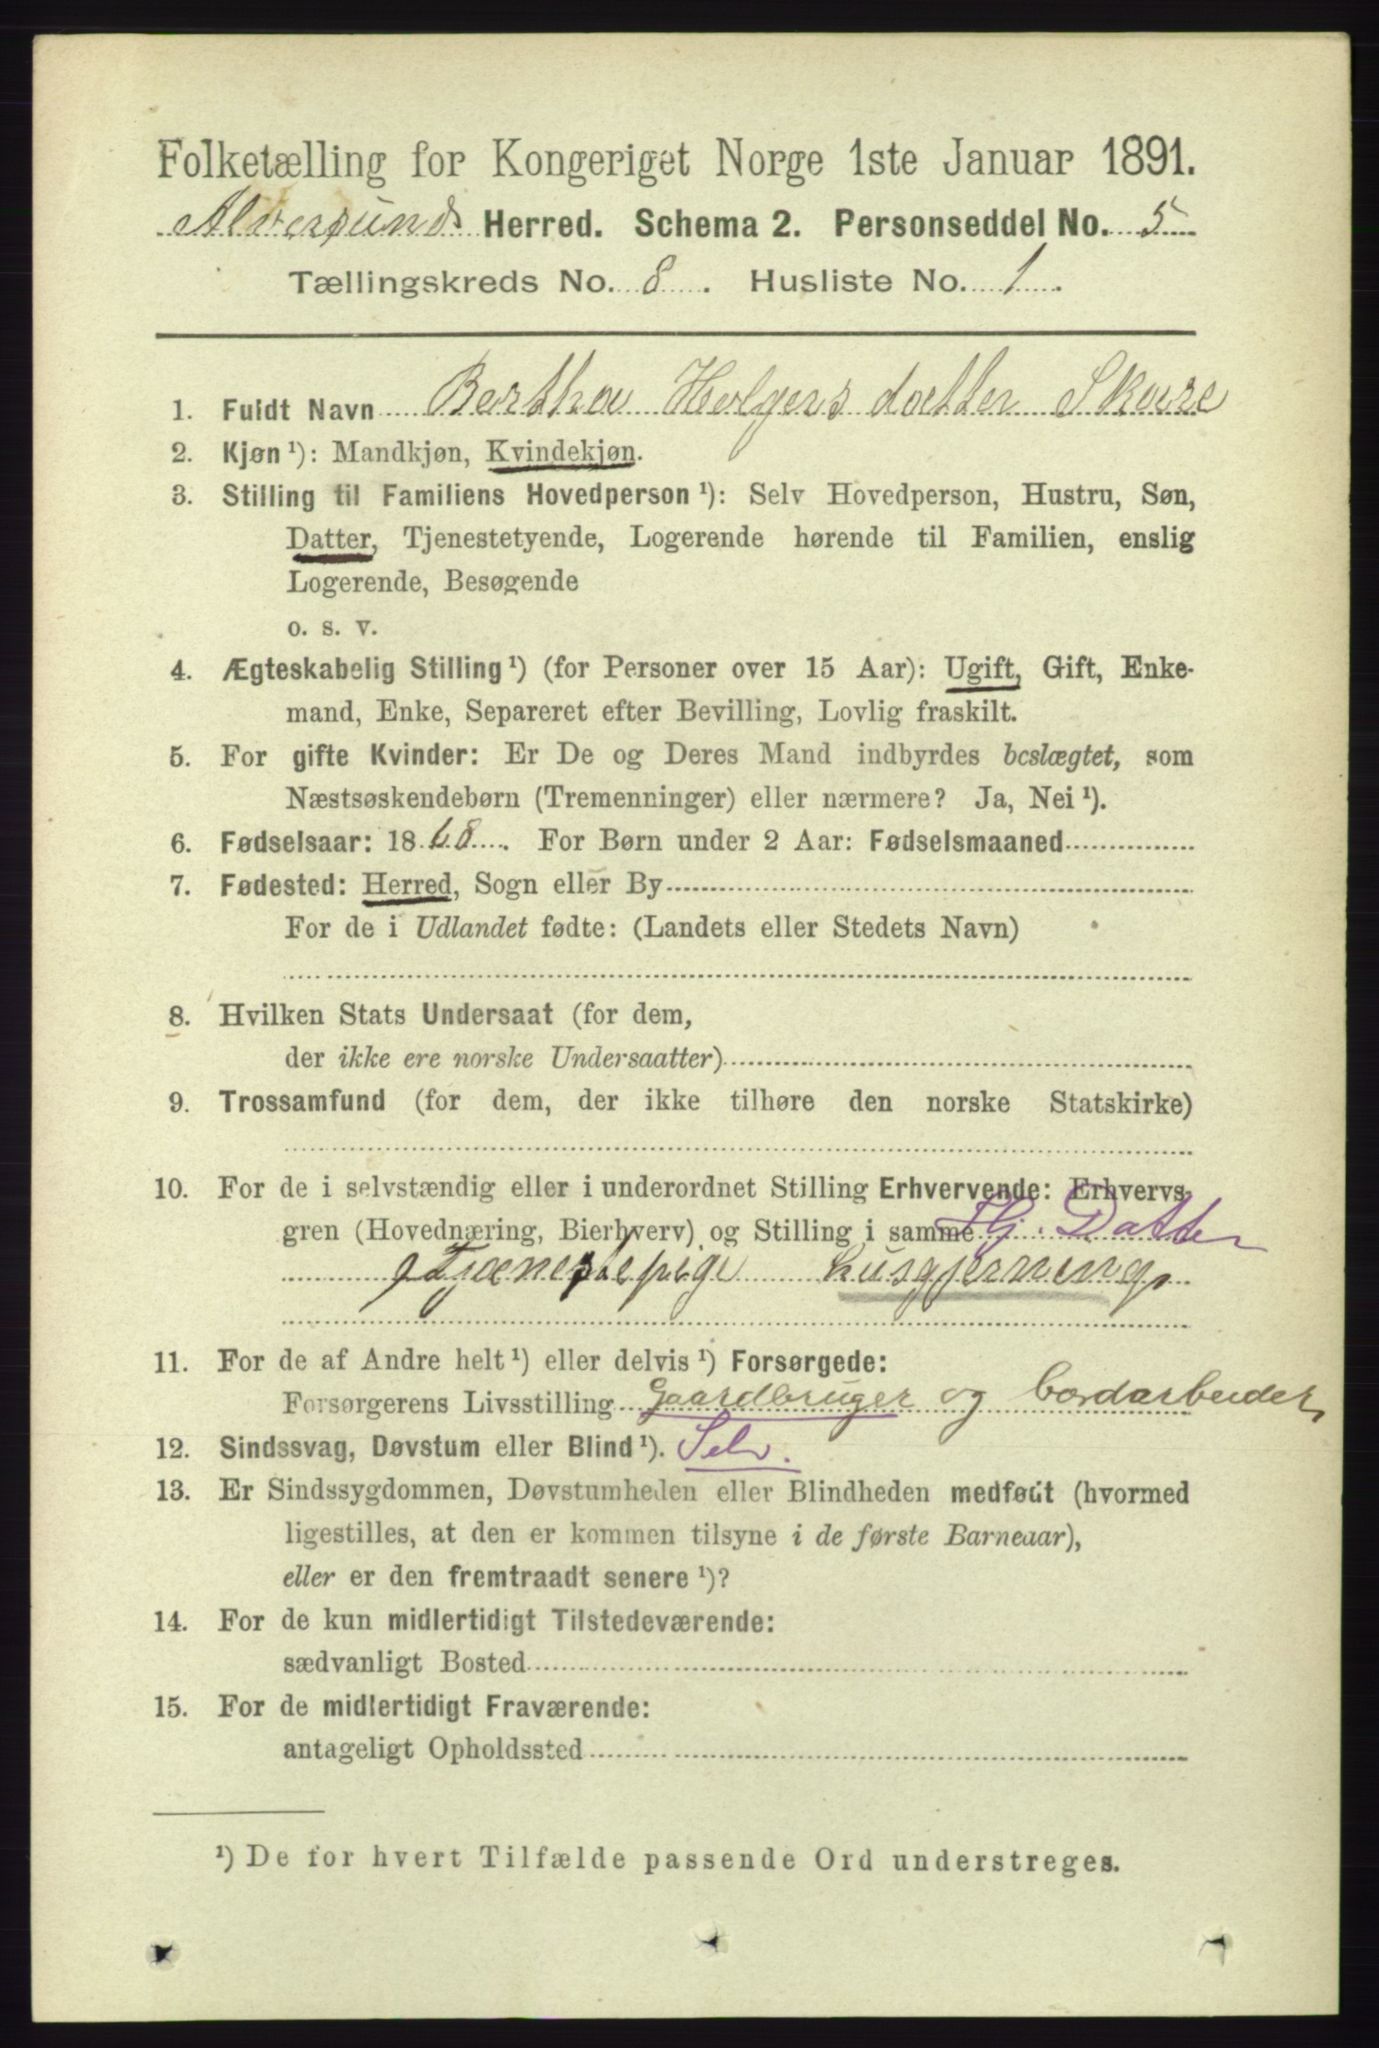 Folketælling for Kongeriget Norge 1ste Januar 1891.
Alversunds Herred. Schema 2. Personseddel No. 5
Tællingskreds No. 8. Husliste No. 1.
1. Fuldt Navn Bertha Holgersdatter Skare
2. Kjøn ¹): Mandkjøn, Kvindekjøn.
3. Stilling til Familiens Hovedperson ¹): Selv Hovedperson, Hustru, Søn,
Datter, Tjenestetyende, Logerende hørende til Familien, enslig
Logerende, Besøgende
o. s. v.
4. Ægteskabelig Stilling ¹) (for Personer over 15 Aar): Ugift, Gift, Enke-
mand, Enke, Separeret efter Bevilling, Lovlig fraskilt.
5. For gifte Kvinder: Er De og Deres Mand indbyrdes beslægtet, som
Næstsøskendebørn (Tremenninger) eller nærmere? Ja, Nei ¹).
6. Fødselsaar: 1868. For Børn under 2 Aar: Fødselsmaaned
7. Fødested: Herred, Sogn eller By
For de i Udlandet fødte: (Landets eller Stedets Navn)
8. Hvilken Stats Undersaat (for dem,
der ikke ere norske Undersaatter)
9. Trossamfund (for dem, der ikke tilhøre den norske Statskirke)
10. For de i selvstændig eller i underordnet Stilling Erhvervende: Erhvervs-
gren (Hovednæring, Bierhverv) og Stilling i samme Hj. Datter
Tjænestepige husgjerning
11. For de af Andre helt ¹) eller delvis ¹) Forsørgede:
Forsørgerens Livsstilling Gaardbruger og bordarbeider
12. Sindssvag, Døvstum eller Blind ¹). Selv.
13. Er Sindssygdommen, Døvstumheden eller Blindheden medfødt (hvormed
ligestilles, at den er kommen tilsyne i de første Barneaar),
eller er den fremtraadt senere ¹)?
14. For de kun midlertidigt Tilstedeværende:
sædvanligt Bosted
15. For de midlertidigt Fraværende:
antageligt Opholdssted
¹) De for hvert Tilfælde passende Ord understreges.